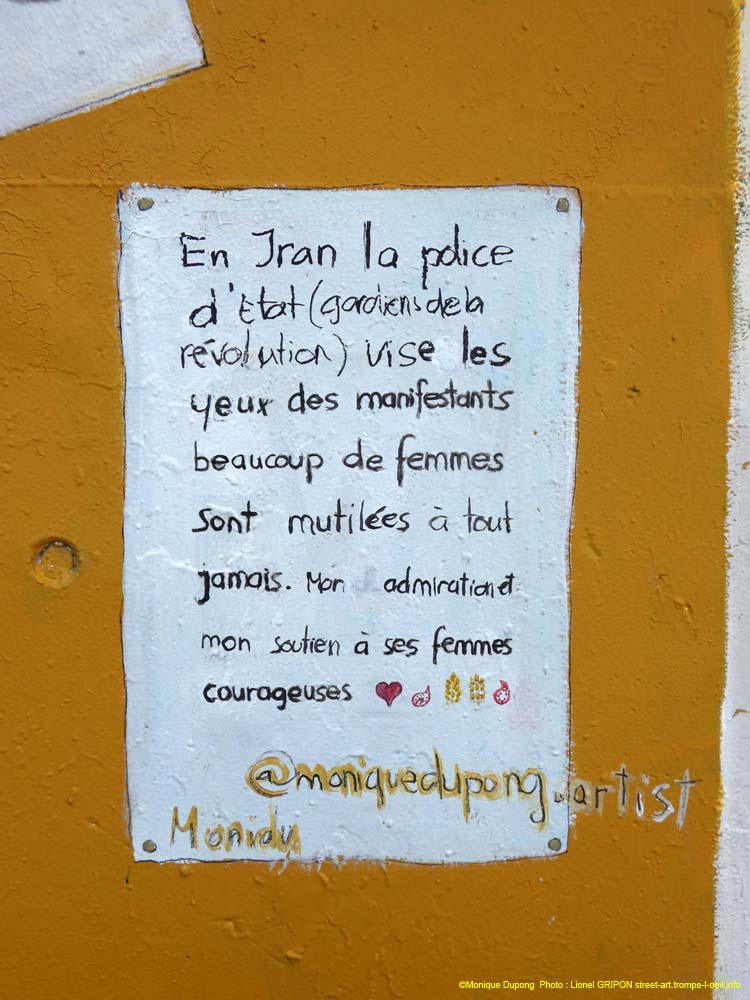 En Iran la police
d'Etat (gardiens de la
révolution) vise les
yeux des manifestants
beaucoup de femmes
sont mutilées à tout
jamais. Mon admiration et
mon soutien à ses femmes
courageuses
@moniquedupong.artist
Monidu
©Monique Dupong Photo : Lionel GRIPON street-art.trompe-l-oeil.info